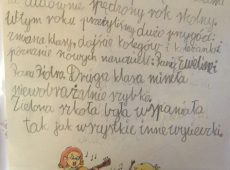 za cudownie spędzony rok szkolny.
W tym roku przeżyliśmy dużo przygód:
zmiana klasy, dojście kolegów i koleżanek
poznanie nowych nauczycieli: Pani Eweliny
Pana Piotra. Druga klasa minęła
niewyobrażalnie szybko.
Zielona szkoła była wspaniała
tak jak wszystkie inne wycieczki.